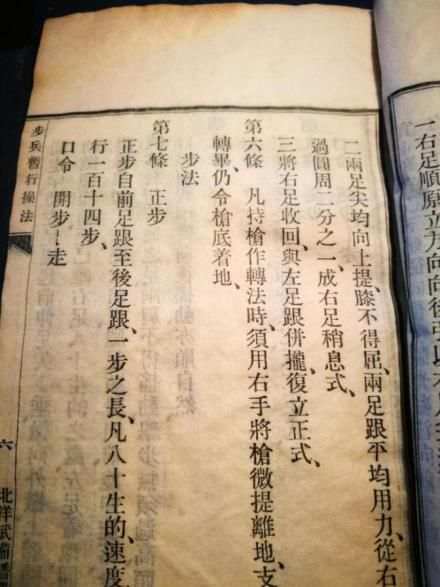 一右足順原立方向向後
二兩足尖均向上提、膝不得屈、兩足跟平均用力、從右
過圓周二分之一、成右足稍息式、
三將右足收回、與左足併攏、復立正式、
第六條 凡持槍作轉法時、須用右手將槍微提離地、支
轉畢、仍令槍底着地、
步法
第七條 正步
正步自前足跟至後足跟、一步之長、凡八十生的、速度
行一百十四步、
口令 開步走
步兵暫行操法
六 北洋武備